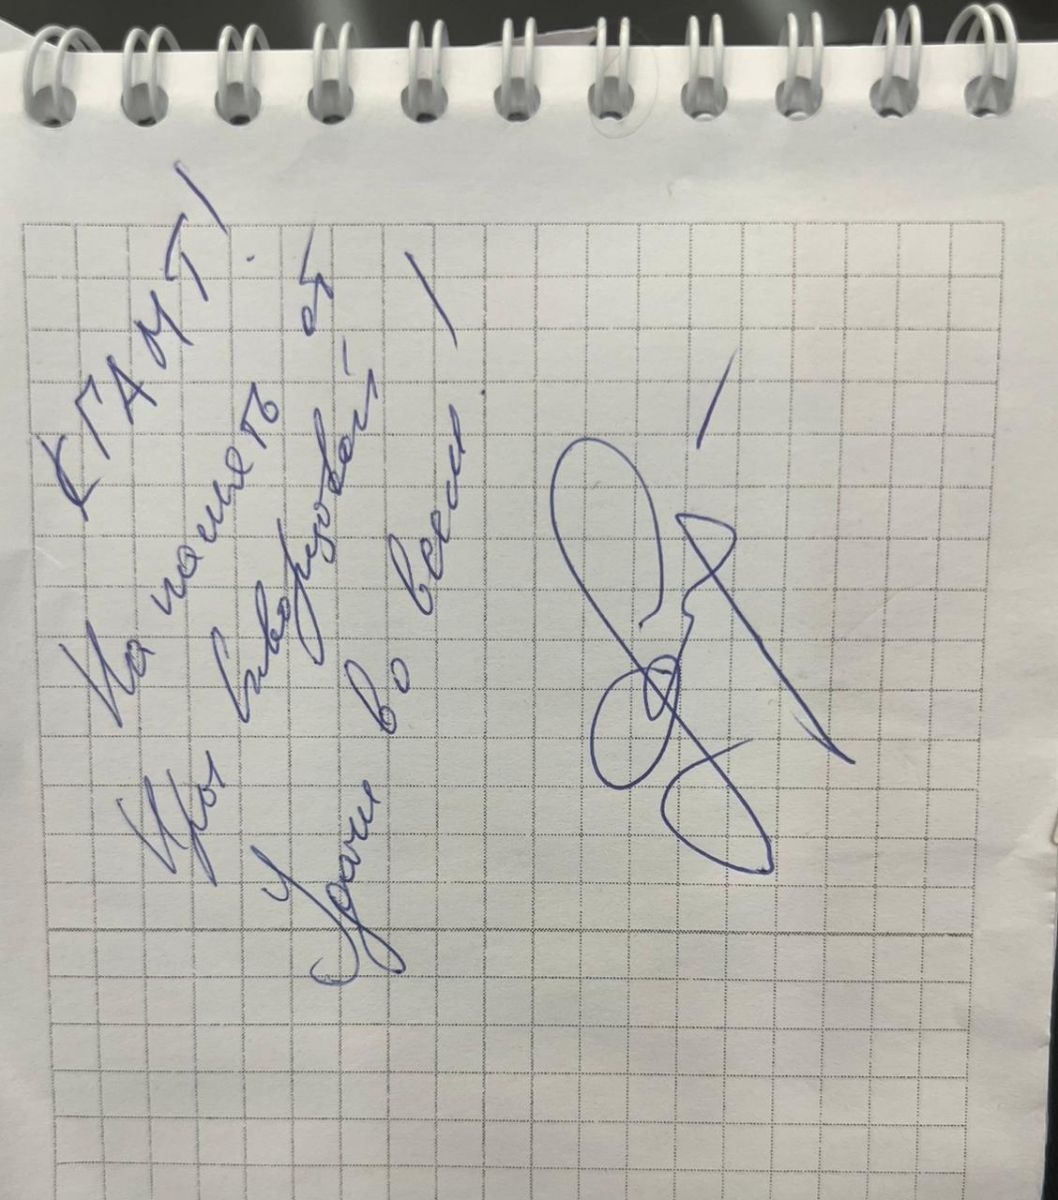 КГАМТ!
На память от
Иры Скворцовой
Удачи во всем!